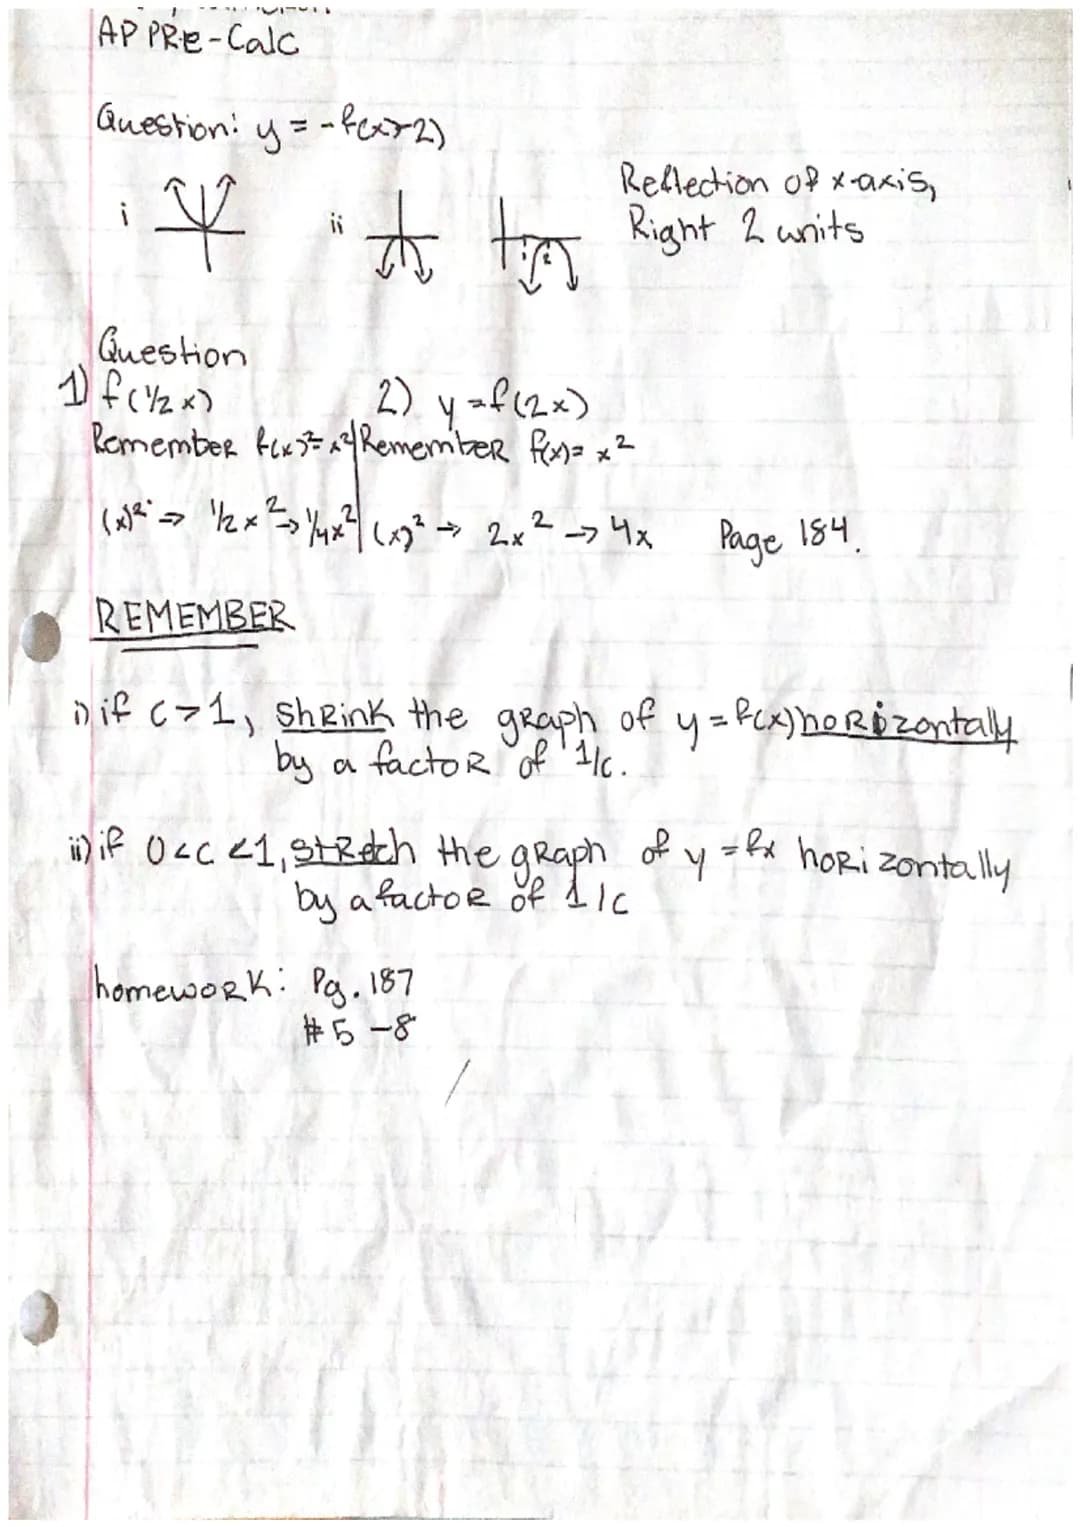 AP PRe-Calc
Question: y = -f(x-2)
i ii
Reflection of x-axis,
Right 2 units
Question
1) f(1/2 x) 2) y=f(2x)
Remember f(x)²= x² | Remember f(x)= x²
(x)² → 1/2 x² → 1/4x² | (x)² → 2x² → 4x Page 184.
REMEMBER
i) if c>1, shrink the graph of y = f(x) horizontally
by a factor of 1/c.
ii) if 0<c<1, stretch the graph of y = fx horizontally
by a factor of 1/c
homework: Pg. 187
#5-8